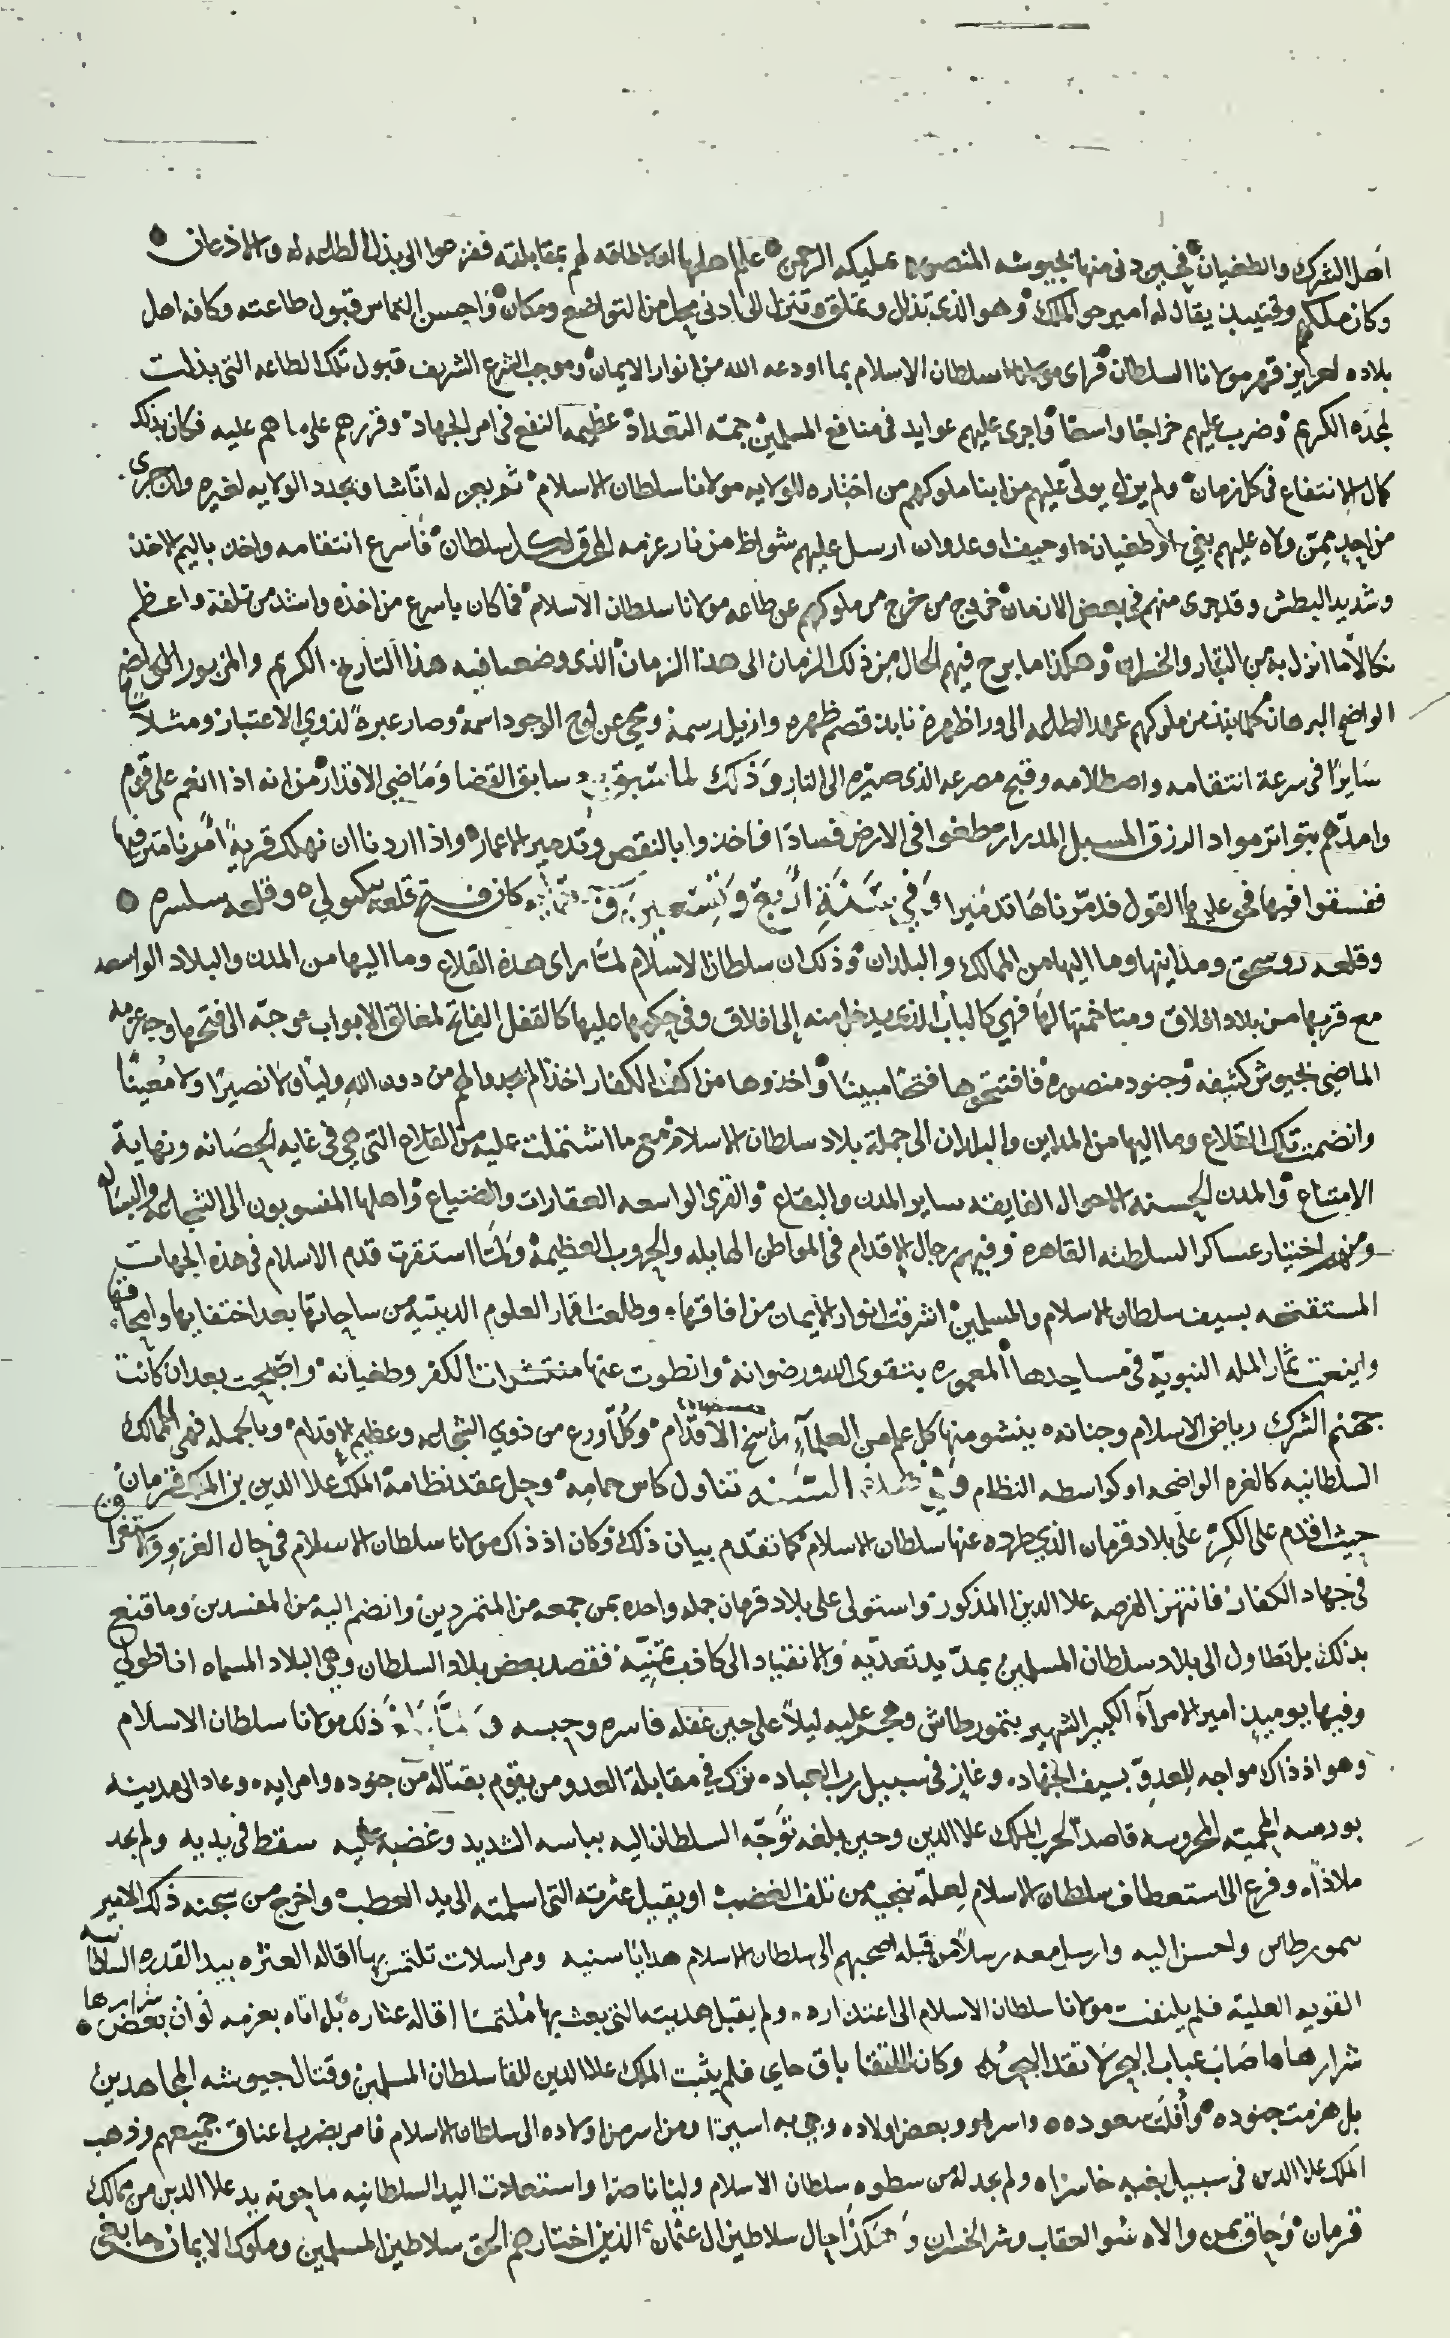 اهل الشرك والطغيان فحين دنى منها بجيوشه المنصوره عليكه الرحمن علم اهلها انه لا طاقه لهم بمقابلته ففزعوا الى بذل الطاعه له والاذعان
وكان ملكهم وقتيذ يقال له امير جو الملك وهو الذى تذلل وتملق وتنزل الى ادنى محل من التواضع ومكان واحسن التماس قبول طاعته وكافه اهل
بلاده لعزايز قهر مولانا السلطان فراى مولانا سلطان الاسلام بما اودعه الله من انوار الايمان وموجب الشرع الشريف قبول تلك الطاعه التى بذلت
لمجده الكريم وضرب عليهم خراجا واسعا واجرى عليهم عوايد فى منافع المسلمين جمة التعداد عظيمه النفع فى امر الجهاد وقررهم على ما هم عليه فكان بذلك
كمال الانتفاع فى كل زمان ولم يزل يولى عليهم من ابنا ملوكهم من اختاره للولايه مولانا سلطان الاسلام ثم يعزله انا شا ويجدد الولايه لغيره وان جرى
من احد ممن ولاه عليهم بغي او طغيان او حيف او عدوان ارسل عليهم شواظ من نار عزمه المحرق لكل سلطان فاسرع انتقامه واخذه باليم الاخذ
وشديد البطش وقد جرى منهم فى بعض الازمان خروج من خرج من ملوكهم عن طاعه مولانا سلطان الاسلام فما كان باسرع من اخذه واشد من تلفه واعظم
نكالا مما انزل به من التبار والخسران وهكذا ما برح فيهم الحال من ذلك الزمان الى هذا الزمان الذى وضعنا فيه هذا التاريخ الكريم والمزبور
الواضح البرهان كلما نبذ من ملوكهم عهد الطاعه الى ورا ظهره نابذ قصم ظهره وازيل رسمه ومحي عن لوح الوجود اسمه وصار عبرة لذوي الاعتبار ومثلا
سايرا فى سرعة انتقامه واصطلامه وقبح مصرعه الذى صيره الى النار وذلك لما سبق به سابق القضا وماضي الاقدار من انه اذا انعم على قوم
وامدهم بتواتر مواد الرزق المسبل المدرار طغوا فى الارض فسادا فاخذوا بالنقص وتدمير الاعمار واذا اردنا ان نهلك قرية امرنا مترفيها
ففسقوا فيها فحق عليها القول فدمرناها تدميرا وفي سنة اربع وتسعين وسبعمائة كان فتح قلعه نيكبولي وقلعه سلسره
وقلعه روسجق ومداينها وما اليها من الممالك والبلدان وذلك ان سلطان الاسلام لما راى هذه القلاع وما اليها من المدن والبلاد الواسعه
مع قربها من بلاد افلاق ومتاخمتها لها فهي كالباب الذى يدخل منه الى افلاق وفى حكمها عليها كالقفل الفاتح لمغالق الابواب توجه الى فتحها وجه عزمه
الماضي بجيوش كثيفه وجنود منصوره فافتتحوها فتحا مبينا واخذوها من اكف الكفار اخذا لم يجدوا لهم من دون الله وليا ولا نصيرا ولا معينا
وانضمت تلك القلاع وما اليها من المداين والبلدان الى جملة بلاد سلطان الاسلام مع ما اشتملت عليه من القلاع التى هي فى غايه الحصانه ونهاية
الامتناع والمدن الحسنه الاحوال الفايقه ساير المدن والبقاع والقرى الواسعه العقارات والضياع واهلها المنسوبون الى الشجاعه والبساله
ومنهم اختيار عساكر السلطنه القاهره وفيهم رجال الاقدام فى المواطن الهايله والحروب العظيمه ولما استقرت قدم الاسلام فى هذه الجهات
المستفتحه بسيف سلطان الاسلام والمسلمين اشرقت انوار الايمان من افاقها وطلعت اقمار العلوم الدينيه من ساحاتها بعد اختفايها وامحاقها
واينعت ثمار المله النبوية فى مساجدها المعموره بتقوى الله ورضوانه وانطوت عنها منتشرات الكفر وطغيانه واصبحت بعد ان كانت
جهنم الشرك رياض الاسلام وجنانه ينشو منها كل علم من العلماء راسخ الاقدام وكل اورع من ذوي الشجاعه وعظيم الاقدام وبالجمله فهى الممالك
السلطانيه كالغره الواضحه او كواسطه النظام وفي هذه السنه تناول كاس حمامه وحل عقد نظامه الملك علا الدين بن الملك قرمان
حيث اقدم على الكره على بلاد قرمان الذي طرده عنها سلطان الاسلام كما تقدم بيان ذلك وكان اذ ذاك مولانا سلطان الاسلام فى حال الغزو واستغراقه
فى جهاد الكفار فانتهز الفرصه علا الدين المذكور واستولى على بلاد قرمان جمله واحده بمن جمعه من المتمردين وانضم اليه من المفسدين وما قنع
بذلك بل تطاول الى بلاد سلطان المسلمين بمد يد تعديه والانقياد الى كاذب تمنيه فقصد بعض بلاد السلطان وهي البلاد المسماه اناطولي
وفيها يوميذ امير الامرآء الكبير الشهير بتمورطاش وهجم عليه ليلا على حين غفله فاسره وحبسه ولما بلغ ذلك مولانا سلطان الاسلام
وهو اذ ذاك مواجه للعدو بسيف الجهاد وغاز فى سبيل رب العباد ترك في مقابلة العدو من يقوم بقتاله من جنوده وامرايه وعاد الى مدينه
بورصه المحميه المحروسه قاصدا لحرب الملك علا الدين وحين بلغه توجه السلطان اليه بباسه الشديد وغضبه عليه سقط فى يديه ولم يجد
ملاذا وفزع الى استعطاف سلطان الاسلام لعله ينجيه من تلف الغضب او يقيل عثرته التى اسلمته الى يد العطب واخرج من سجنه ذلك الامير
تمورطاس واحسن اليه وارسل معه رسلا من قبله اصحبهم الى سلطان الاسلام هدايا سنيه ومراسلات تلتمس بها اقاله العثره بيد القدره السلطانيه
القويه العليه فلم يلتفت مولانا سلطان الاسلام الى اعتذاره ولم يقبل هديته التى بعث بها ملتمسا اقاله عثاره بل اتاه بعزمه لو ان بعض
شرارها صاب عباب البحر لاتقد البحر وكان الملتقا باق حاي فلم يثبت الملك علا الدين للقا سلطان المسلمين وقتال جيوشه المجاهدين
بل هزمت جنوده وافلت سعوده واسر هو وبعض اولاده وجي به اسيرا ومن اسر من اولاده الى سلطان الاسلام فامر بضرب اعناق جميعهم وذهب
الملك علا الدين فى سبيل بغيه خاسرا ولم يجد له من سطوه سلطان الاسلام وليا ناصرا واستعادت اليد السلطانيه ما حوته يد علا الدين من ممالك
قرمان وحاق بمن والاه سو العقاب وشر الخسران وهكذا حال سلاطين ال عثمان الذين اختارهم الحق سلاطين المسلمين وملوك الايمان ما بغى